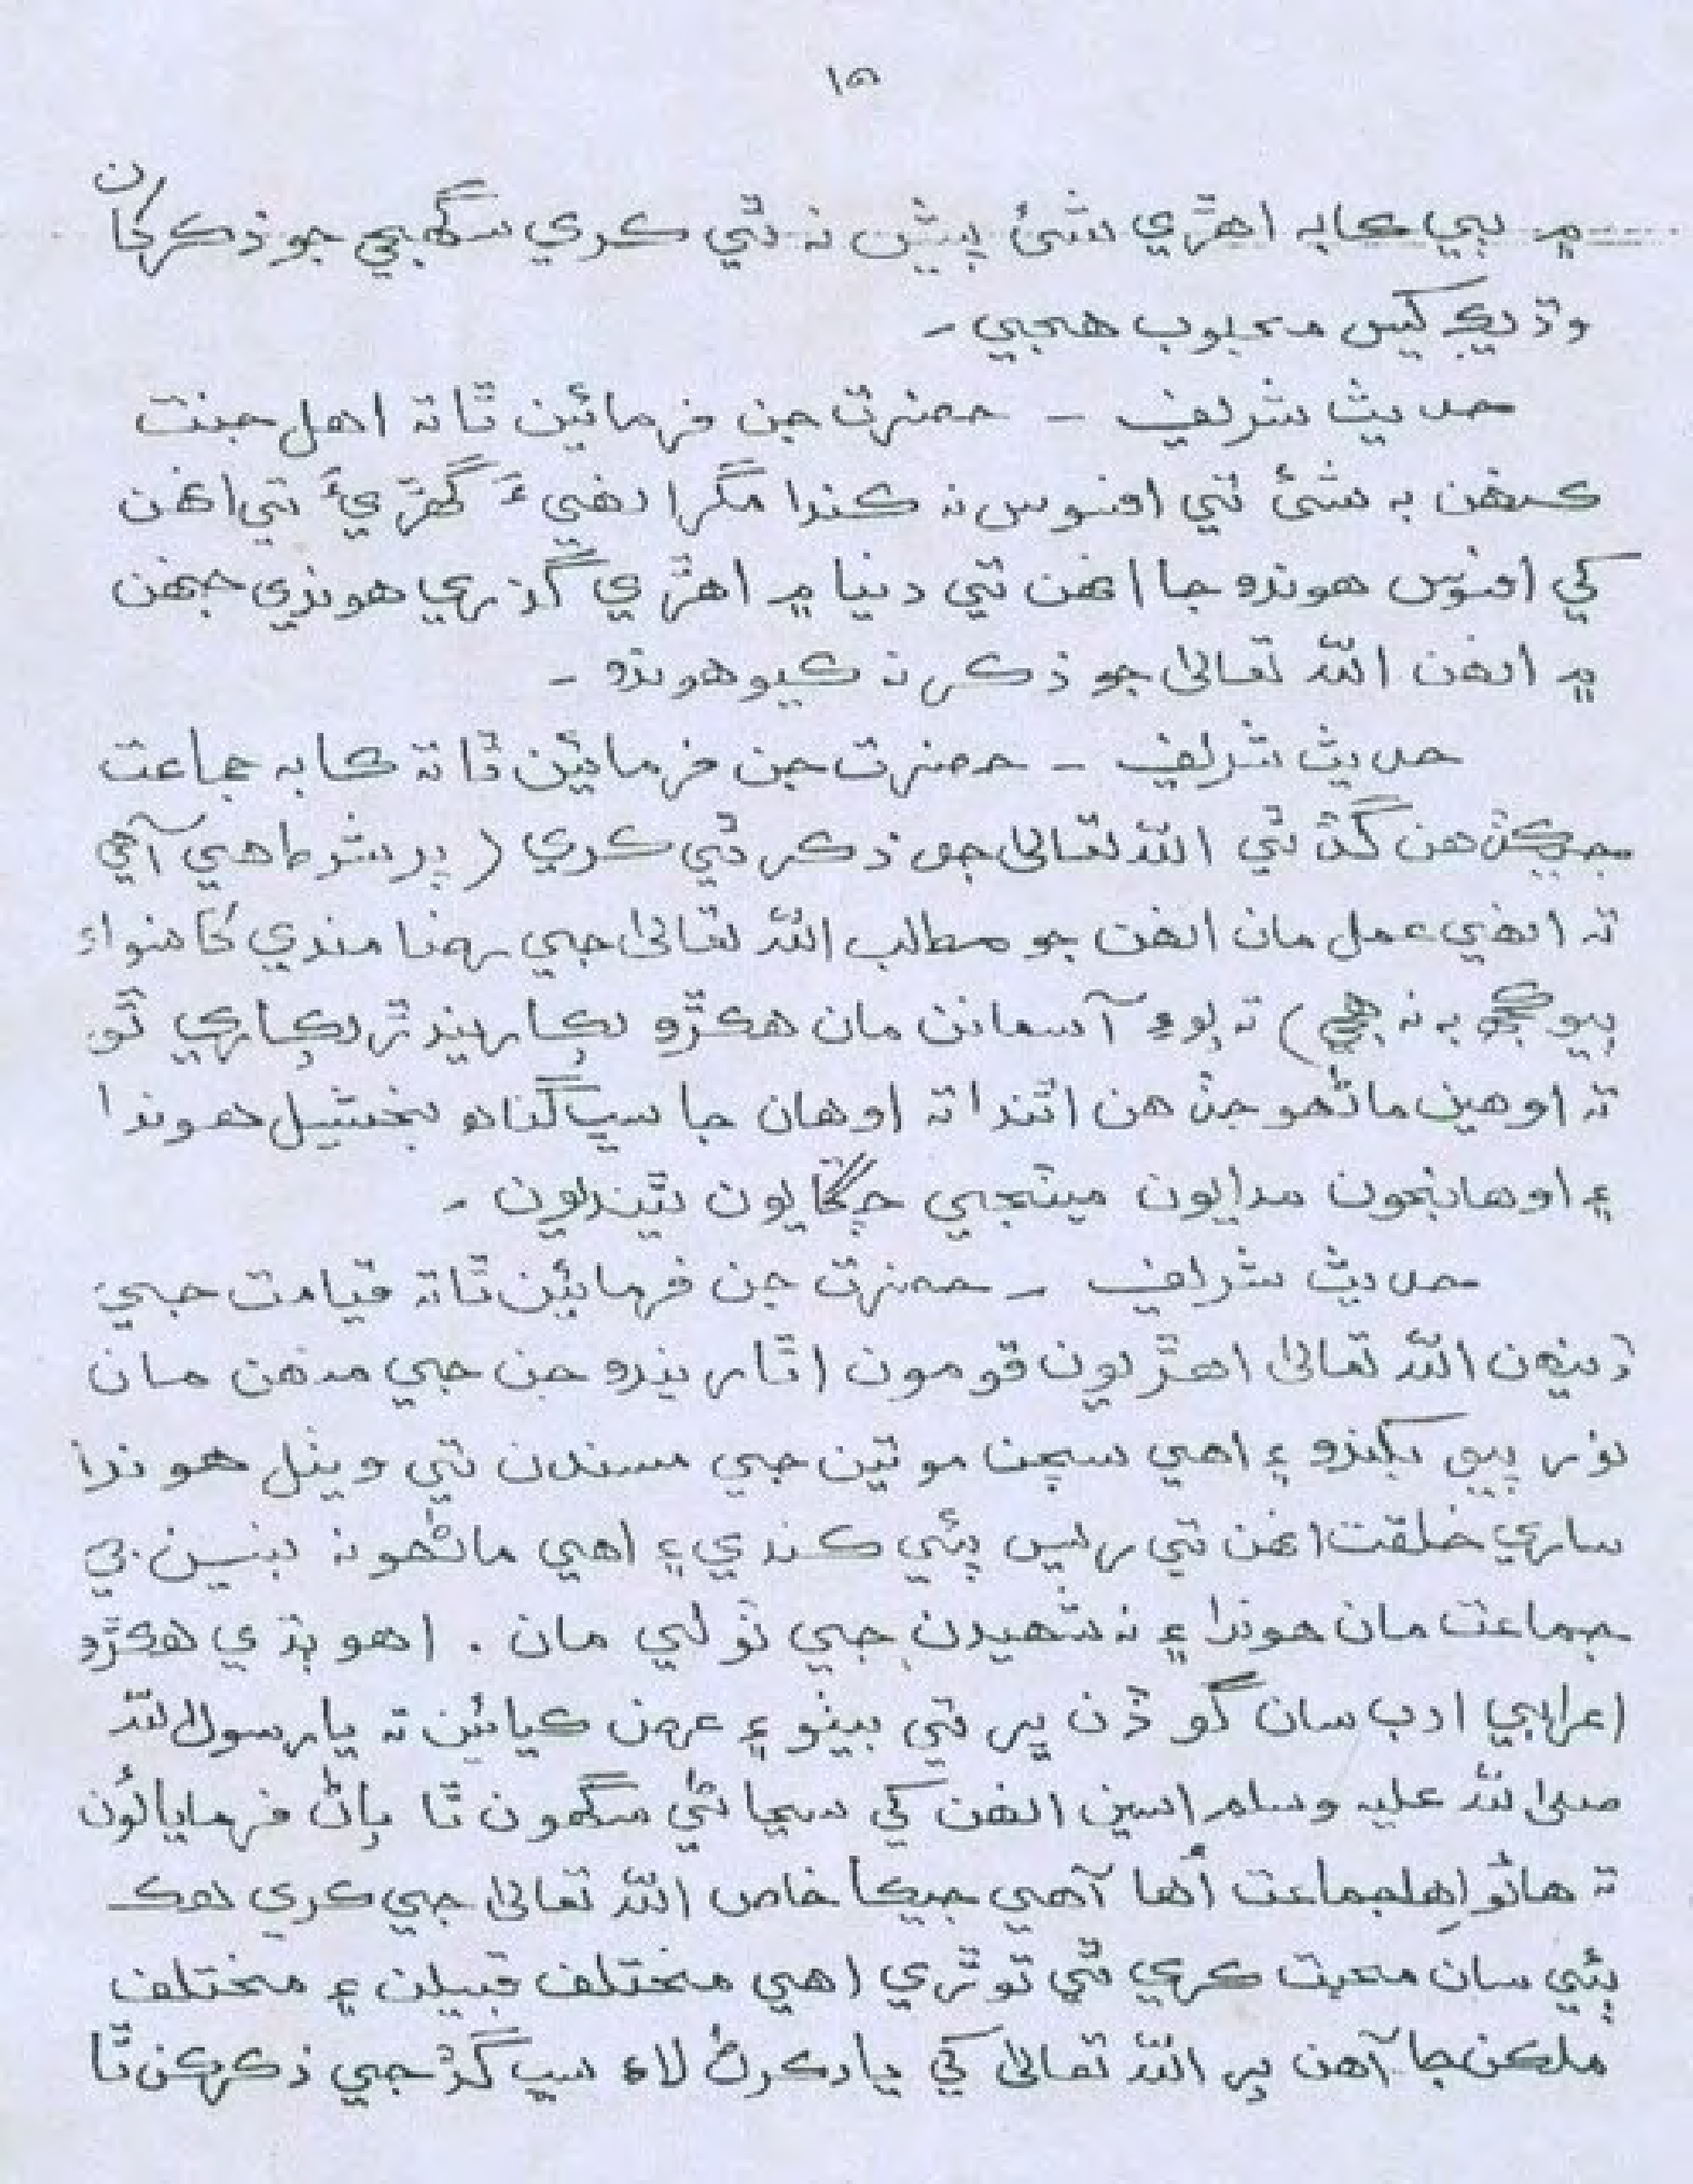 ١٥
۾ ٻي ڪابه اهڙي شئ پيش نه ٿي ڪري سگهجي جو ذڪر کان
وڌيڪ کيس محبوب هجي -
حديث شريف - حضرت جن فرمائين ٿا ته اهل جنت
ڪنهن به شئ تي افسوس نه ڪندا مگر انهيءَ گهڙيءَ تي انهن
کي افسوس هوندو جا انهن تي دنيا ۾ اهڙي گذري هوندي جنهن
۾ انهن الله تعاليٰ جو ذڪر نه ڪيو هوندو -
حديث شريف - حضرت جن فرمائين ٿا ته ڪابه جماعت
جيڪڏهن گڏ ٿي الله تعاليٰ جو ذڪر ٿي ڪري (پر شرط اهي آهي
ته انهي عمل مان انهن جو مطلب الله تعاليٰ جي رضامندي کانسواءِ
ٻيو ڪجهه به نه هجي) ته پوءِ آسمانن مان هڪڙو پڪاريندڙ پڪاري ٿو
ته اوهين ماڻهو جڏهن اٿندا ته اوهان جا سڀ گناهه بخشيل هوندا
۽ اوهانجون مدايون ميٽجي چڱايون ٿينديون -
حديث شريف - حضرت جن فرمائين ٿا ته قيامت جي
ڏينهن الله تعاليٰ اهڙيون قومون اٿاريندو جن جي منهن مان
نور پيو ٽپڪندو ۽ اهي سچن موتين جي مسندن تي ويٺل هوندا
ساري خلقت انهن تي ريس پئي ڪندي ۽ اهي ماڻهو نه نبين جي
جماعت مان هوندا ۽ نه شهيدن جي ٽولي مان . اهو ٻڌي هڪڙو
اعرابي ادب سان گوڏن ڀر ٿي بيٺو ۽ عرض ڪيائين ته يارسول الله
صلي الله عليه وسلم اسين انهن کي سڃاڻي سگهون ٿا پاڻ فرمايائون
ته هائو اها جماعت اُها آهي جيڪا خاص الله تعاليٰ جي ڪري هڪ
ٻئي سان محبت ڪري ٿي توڙي اهي مختلف قبيلن ۽ مختلف
ملڪن جا آهن پر الله تعاليٰ کي ياد ڪرڻ لاءِ سڀ گڏجي ذڪر ڪن ٿا